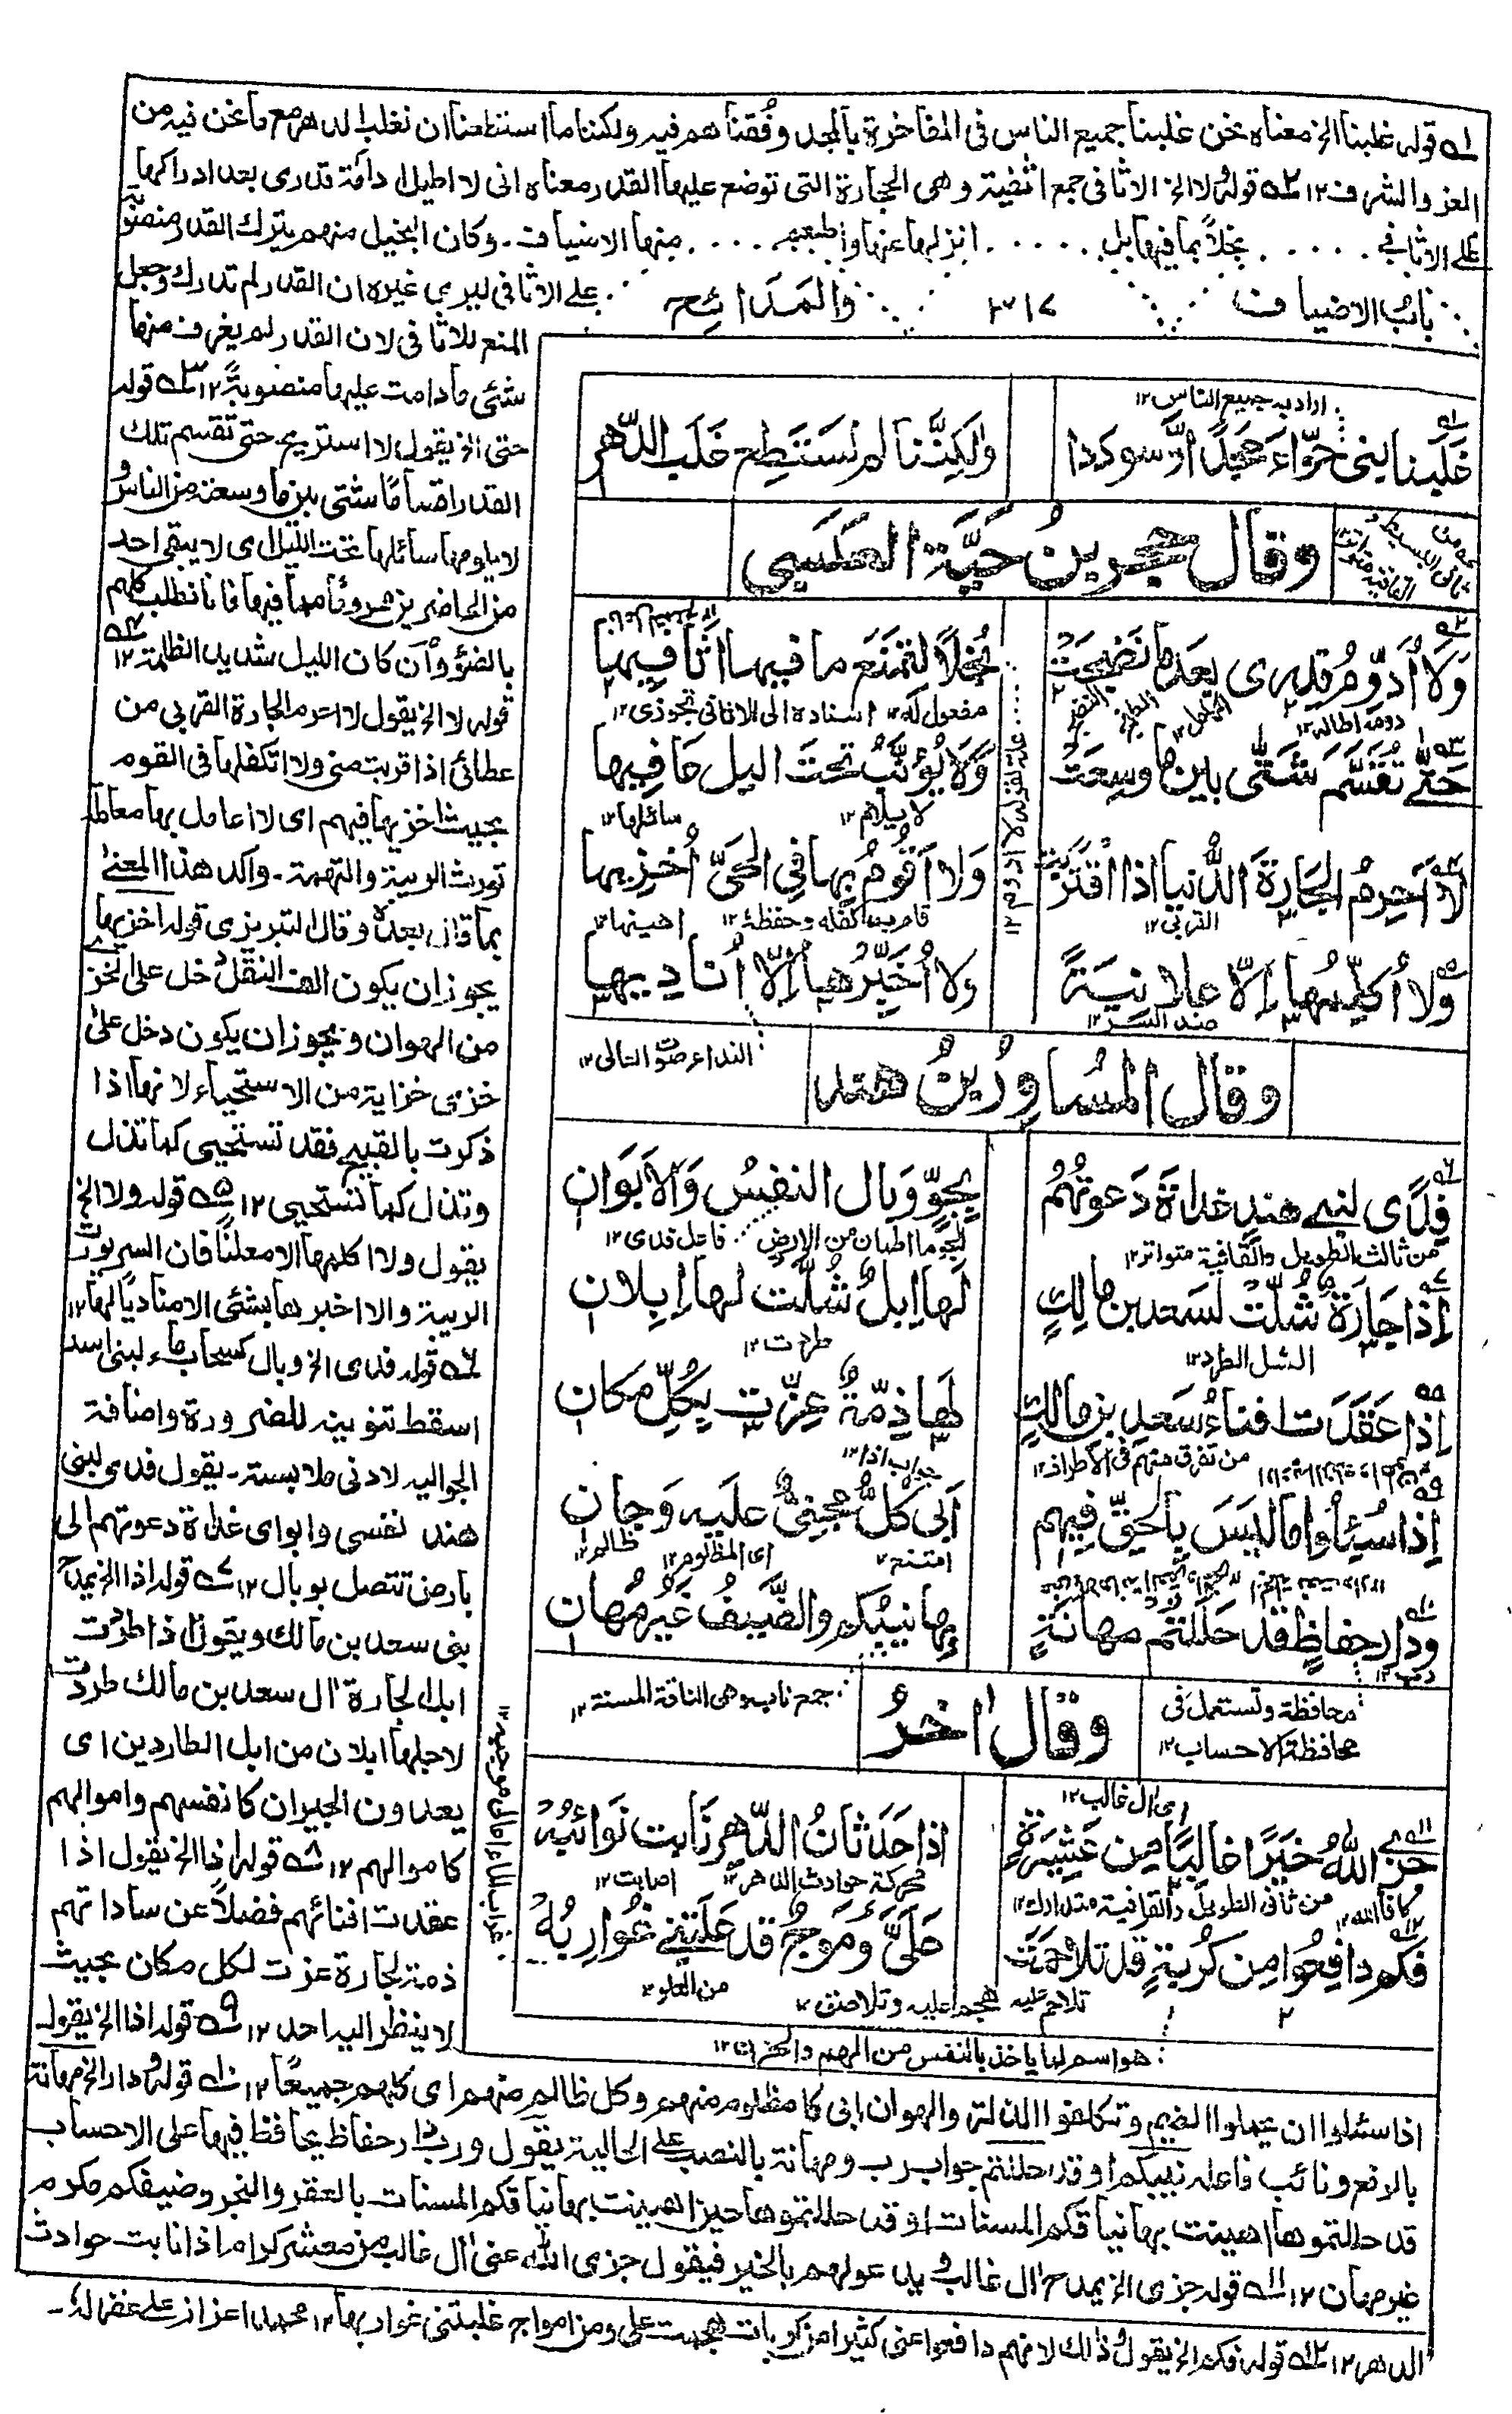 ١ه قوله غلبنا الخ معناه نحن غلبنا جميع الناس فى المفاخرة بالمجد وفُقنا هم فيه ولكننا ما استتطعنا ان نغلب الدهر مع ما نحن فيه من
العز والشرف ١٢ ٢ه قوله ولا الخ الاثافى جمع اثفية وهى الحجارة التى توضع عليها القدر معناه انى لا اطيل ادامة قدرى بعد ادراكها
على الاثافى بخلاً بما فيها بل انزلها عنها واطبعهم منها الاضياف - وكان البخيل منهم يترك القدر منصوبة
باب الاضياف ٣١٧ والمدائح
على الاثافى ليرى غيره ان القدر لم تدرك وجعل
المنع للاثافى لان القدر لم يغرف منها
شئى ما دامت عليها منصوبةً ١٢ ٣ه قوله
حتى الخ يقول لا استريح حتى تقسم تلك
القدر اقساماً شتى بين ما وسعته من الناس و
لا يلومها سائلها تحت الليل اى لا يبقى احد
من الحاضرين محروماً مما فيها فانا نطلب كلهم
بالضؤ وان كان الليل شديد الظلمة ١٢ ٤ه
قوله لا الخ يقول لا احرم الجارة القربى من
عطائى اذا قربت منى ولا اتكفلها فى القوم
بحيث اخزيها فيهم اى لا اعامل بها معاملة
تورث الريبة والتهمة - واكد هذا المعنى
بما قال بعده وقال التبريزى قوله اخزيها
يجوز ان يكون الف النقل دخل على الخزى
من الهوان ويجوز ان يكون دخل على
خزى خزاية من الاستحياء لانها اذا
ذكرت بالقبيح فقد تستحيى كما تذل
وتذل كما تستحيى ١٢ ٥ه قوله ولا الخ
يقول ولا اكلمها الا معلناً فان السر يورث
الريبة والا اخبرها بشئى الا مناديا لها ١٢
٦ه قوله فدى الخ وبال كسحاب ماء لبنى اسد
اسقط تنوينه للضرورة واضافة
الجو اليه لادنى ملابسة - يقول فدى لبنى
هند نفسى وابواى غداة دعوتهم الى
بارض تتصل بوبال ١٢ ٧ه قوله اذا الخ يمدح
بنى سعد بن مالك ويقول اذا طردت
ابل لجارة آل سعد بن مالك طردت
لاجلها ابلان من ابل الطاردين اى
يعدون الجيران كانفسهم واموالهم
كاموالهم ١٢ ٨ه قوله اذا الخ يقول اذا
عقدت افنائهم فضلاً عن ساداتهم
ذمة لجارة عزت لكل مكان بحيث
لا ينظر اليه احد ١٢ ٩ه قوله اذا الخ يقول
اراد به جميع الناس ١٢
غَلَبنا بنى حوّاءَ مَجدًا وّ سودَدا
ولكِنّنا لم نَستَطِع غَلَبَ الدّهر
من ثانى البسيط والقافية متواترة
وقال حجر بنُ حَيَّةَ العَبسِى
وَلَا اُدَوِّمُ قِدرى بعدَ ما نَضِجَت
بُخلاً لتمنَع ما فيها اثافيها
دومه اطاله ١٢
مفعول له ١٢ اسناده الى الاثافى تجوزى ١٢
حَتّٰى تُقَسَّمَ شَتّٰى بين ما وسِعَت
وَلَا يُؤنَّبُ تحتَ اليل عافيها
لا يلام ١٢ سائلها ١٢
لَا اَحرِمُ الجارَةَ الدُّنيا اذا اقتَرَبَت
وَلا اَقومُ بها فِى الحَىّ اُخزِيها
القربى ١٢
قام به اكفله وحفظه ١٢ اهينها ١٢
وَلا اُكلّمُها اِلّا علانيَةً
ولا اُخَبِّرُها اِلّا اُناديها
ضد السر ١٢
النداء صوت التالى ١٢
وقال المُساوِرُ بنُ هند
فِدًى لبنى هندٍ غداةَ دَعوتُهُم
بِجوِّ وَبال النفسُ وَالاَبَوَانِ
من ثالث الطويل والقافية متواتر ١٢
الجو ما اطمان من الارض فاعل فدى ١٢
اِذا جارَةٌ شُلّت لسَعد بن مالِكٍ
لَها اِبلٌ شُلَّت لها اِبِلانِ
الشل الطرد ١٢
طردت ١٢
اِذا عَقَدَت افناءُ سَعدِ بنِ مالِكٍ
لها ذِمّةٌ عِزّت بِكُلِّ مكانِ
من تفرق منهم فى الاطراف ١٢
جواب اذا ١٢
اِذا سُئِلُوا ما ليسَ بالحقِّ فيهِم
اَبى كلُّ مجنِىٍّ عليه وَجانِ
امتنع ١٢ اى المظلوم ١٢ ظالم ١٢
ودارِ حِفاظٍ قد حَلَلتُم مهانةٌ
بِها نيبُكم والضّيفُ غَيرُ مُهانِ
رب ١٢
محافظة وتستعمل فى
محافظة الاحساب ١٢
وقال اٰخرُ
جمع ناب وهى الناقة المسنة ١٢
اى آل غالب ١٢
جزى اللّٰهُ خيرًا غالبًا مِن عَشِيرَةٍ
اذا حَدَثانُ الدّهرِ نابت نَوائبُه
كافأ الله ١٢ من ثانى الطويل والقافية متدارك ١٢
محركة حوادث الدهر ١٢ اصابت ١٢
فكم دافعُوا مِن كُربةٍ قد تلاحَمَت
عَلَىَّ وَمَوجٍ قد عَلَتنِى غَوارِبُهُ
تلاحم عليه هجم عليه وتلاصق ١٢
من العلو ١٢
هو اسم لما ياخذ بالنفس من الهم والحزن ١٢
اذا سئلوا ان يحملوا الضيم وتتكلفوا المذلة والهوان ابى كل مظلوم منهم وكل ظالم منهم اى كلهم جميعًا ١٢ ١٠ه قوله ودار الخ مهانة
بالرفع ونائب فاعله نيبكم او قد حللتم جواب رب ومهانة بالنصب على الحالية يقول ورب دار حفاظ يحافظ فيها على الاحساب
قد حللتموها اهينت بها نياقكم المسنات او قد حللتموها حين اهينت بها نياقكم المسنات بالعقر والنحر وضيفكم مكرم
غير مهان ١٢ ١١ه قوله جزى الخ يمدح آل غالب ويدعو لهم بالخير فيقول جزى الله عنى آل غالب من معشر كرام اذا نابت حوادث
الدهر ١٢ ١٢ه قوله فكم الخ يقول ذلك لانهم دافعوا عنى كثيرا من كربات هجمت على ومن امواج غلبتنى غواربها ١٢ محمد اعزاز على غفرله -